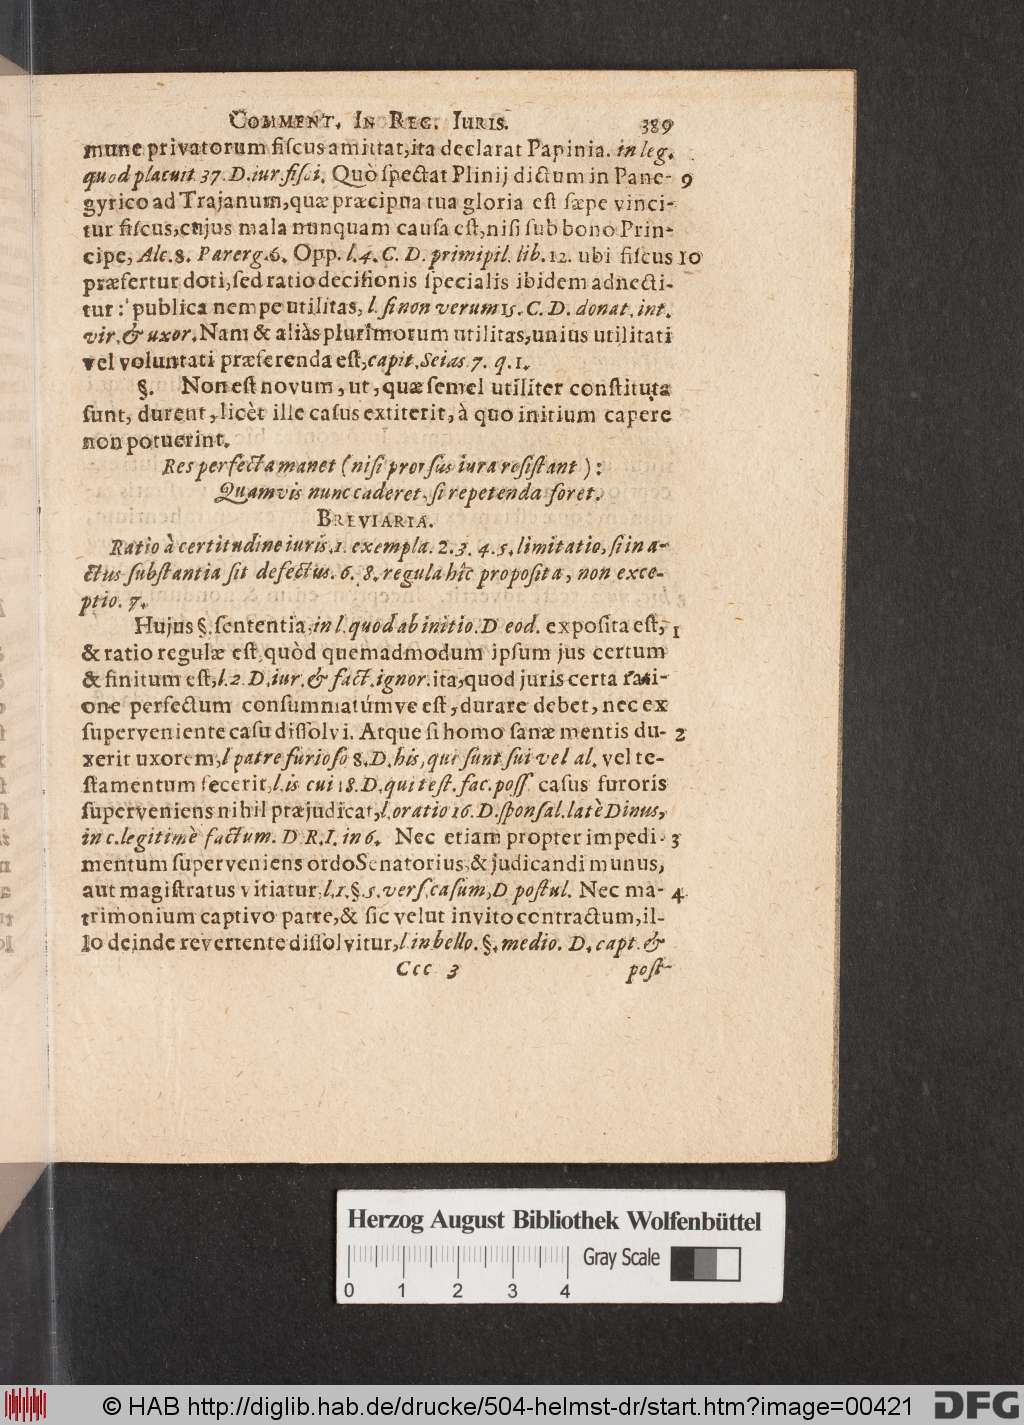 COMMENT. IN REG. IURIS. 389
mune privatorum fiſcus amittat, ita declarat Papinia. in leg.
quod placuit 37. D. iur. fiſci. Quò ſpectat Plinij dictum in Pane- 9
gyrico ad Trajanum, quæ præcipua tua gloria eſt ſæpe vinci-
tur fiſcus, cujus mala nunquam cauſa eſt, niſi ſub bono Prin-
cipe, Alc. 8. Parerg. 6. Opp. l. 4. C. D. primipil. lib. 12. ubi fiſcus 10
præfertur doti, ſed ratio deciſionis ſpecialis ibidem adnecti-
tur: publica nempe utilitas, l. ſi non verum 15. C. D. donat. int.
vir. & uxor. Nam & aliàs plurimorum utilitas, unius utilitati
vel voluntati præferenda eſt, capit. Seias 7. q. 1.
§. Non eſt novum, ut, quæ ſemel utiliter conſtituta
ſunt, durent, licèt ille caſus extiterit, à quo initium capere
non potuerint.
Res perfecta manet (niſi prorſus iura reſiſtant):
Quamvis nunc caderet, ſi repetenda foret.
BREVIARIA.
Ratio à certitudine iuris. 1. exempla. 2. 3. 4. 5. limitatio, ſi in a-
ctus ſubſtantia ſit defectus. 6. 8. regula hîc propoſita, non exce-
ptio. 7.
Hujus §. ſententia, in l. quod ab initio. D eod. expoſita eſt, 1
& ratio regulæ eſt, quòd quemadmodum ipſum jus certum
& finitum eſt, l. 2. D. iur. & fact. ignor. ita, quod juris certa rati-
one perfectum conſummatúmve eſt, durare debet, nec ex
ſuperveniente caſu diſſolvi. Atque ſi homo ſanæ mentis du- 2
xerit uxorem, l patre furioſo 8. D. his, qui ſunt ſui vel al. vel te-
ſtamentum fecerit, l. is cui 18. D. qui teſt. fac. poſſ caſus furoris
ſuperveniens nihil præjudicat, l. oratio 16. D. ſponſal. latè Dinus,
in c. legitimè factum. D R. I. in 6. Nec etiam propter impedi- 3
mentum ſuperveniens ordo Senatorius, & judicandi munus,
aut magiſtratus vitiatur, l. 1. §. 5. verſ. caſum, D poſtul. Nec ma- 4
trimonium captivo patre, & ſic velut invito contractum, il-
lo deinde revertente diſſolvitur, l. in bello. §. medio. D. capt. &
Ccc 3 poſt-
Herzog August Bibliothek Wolfenbüttel
Gray Scale
0 1 2 3 4
© HAB http://diglib.hab.de/drucke/504-helmst-dr/start.htm?image=00421 DFG